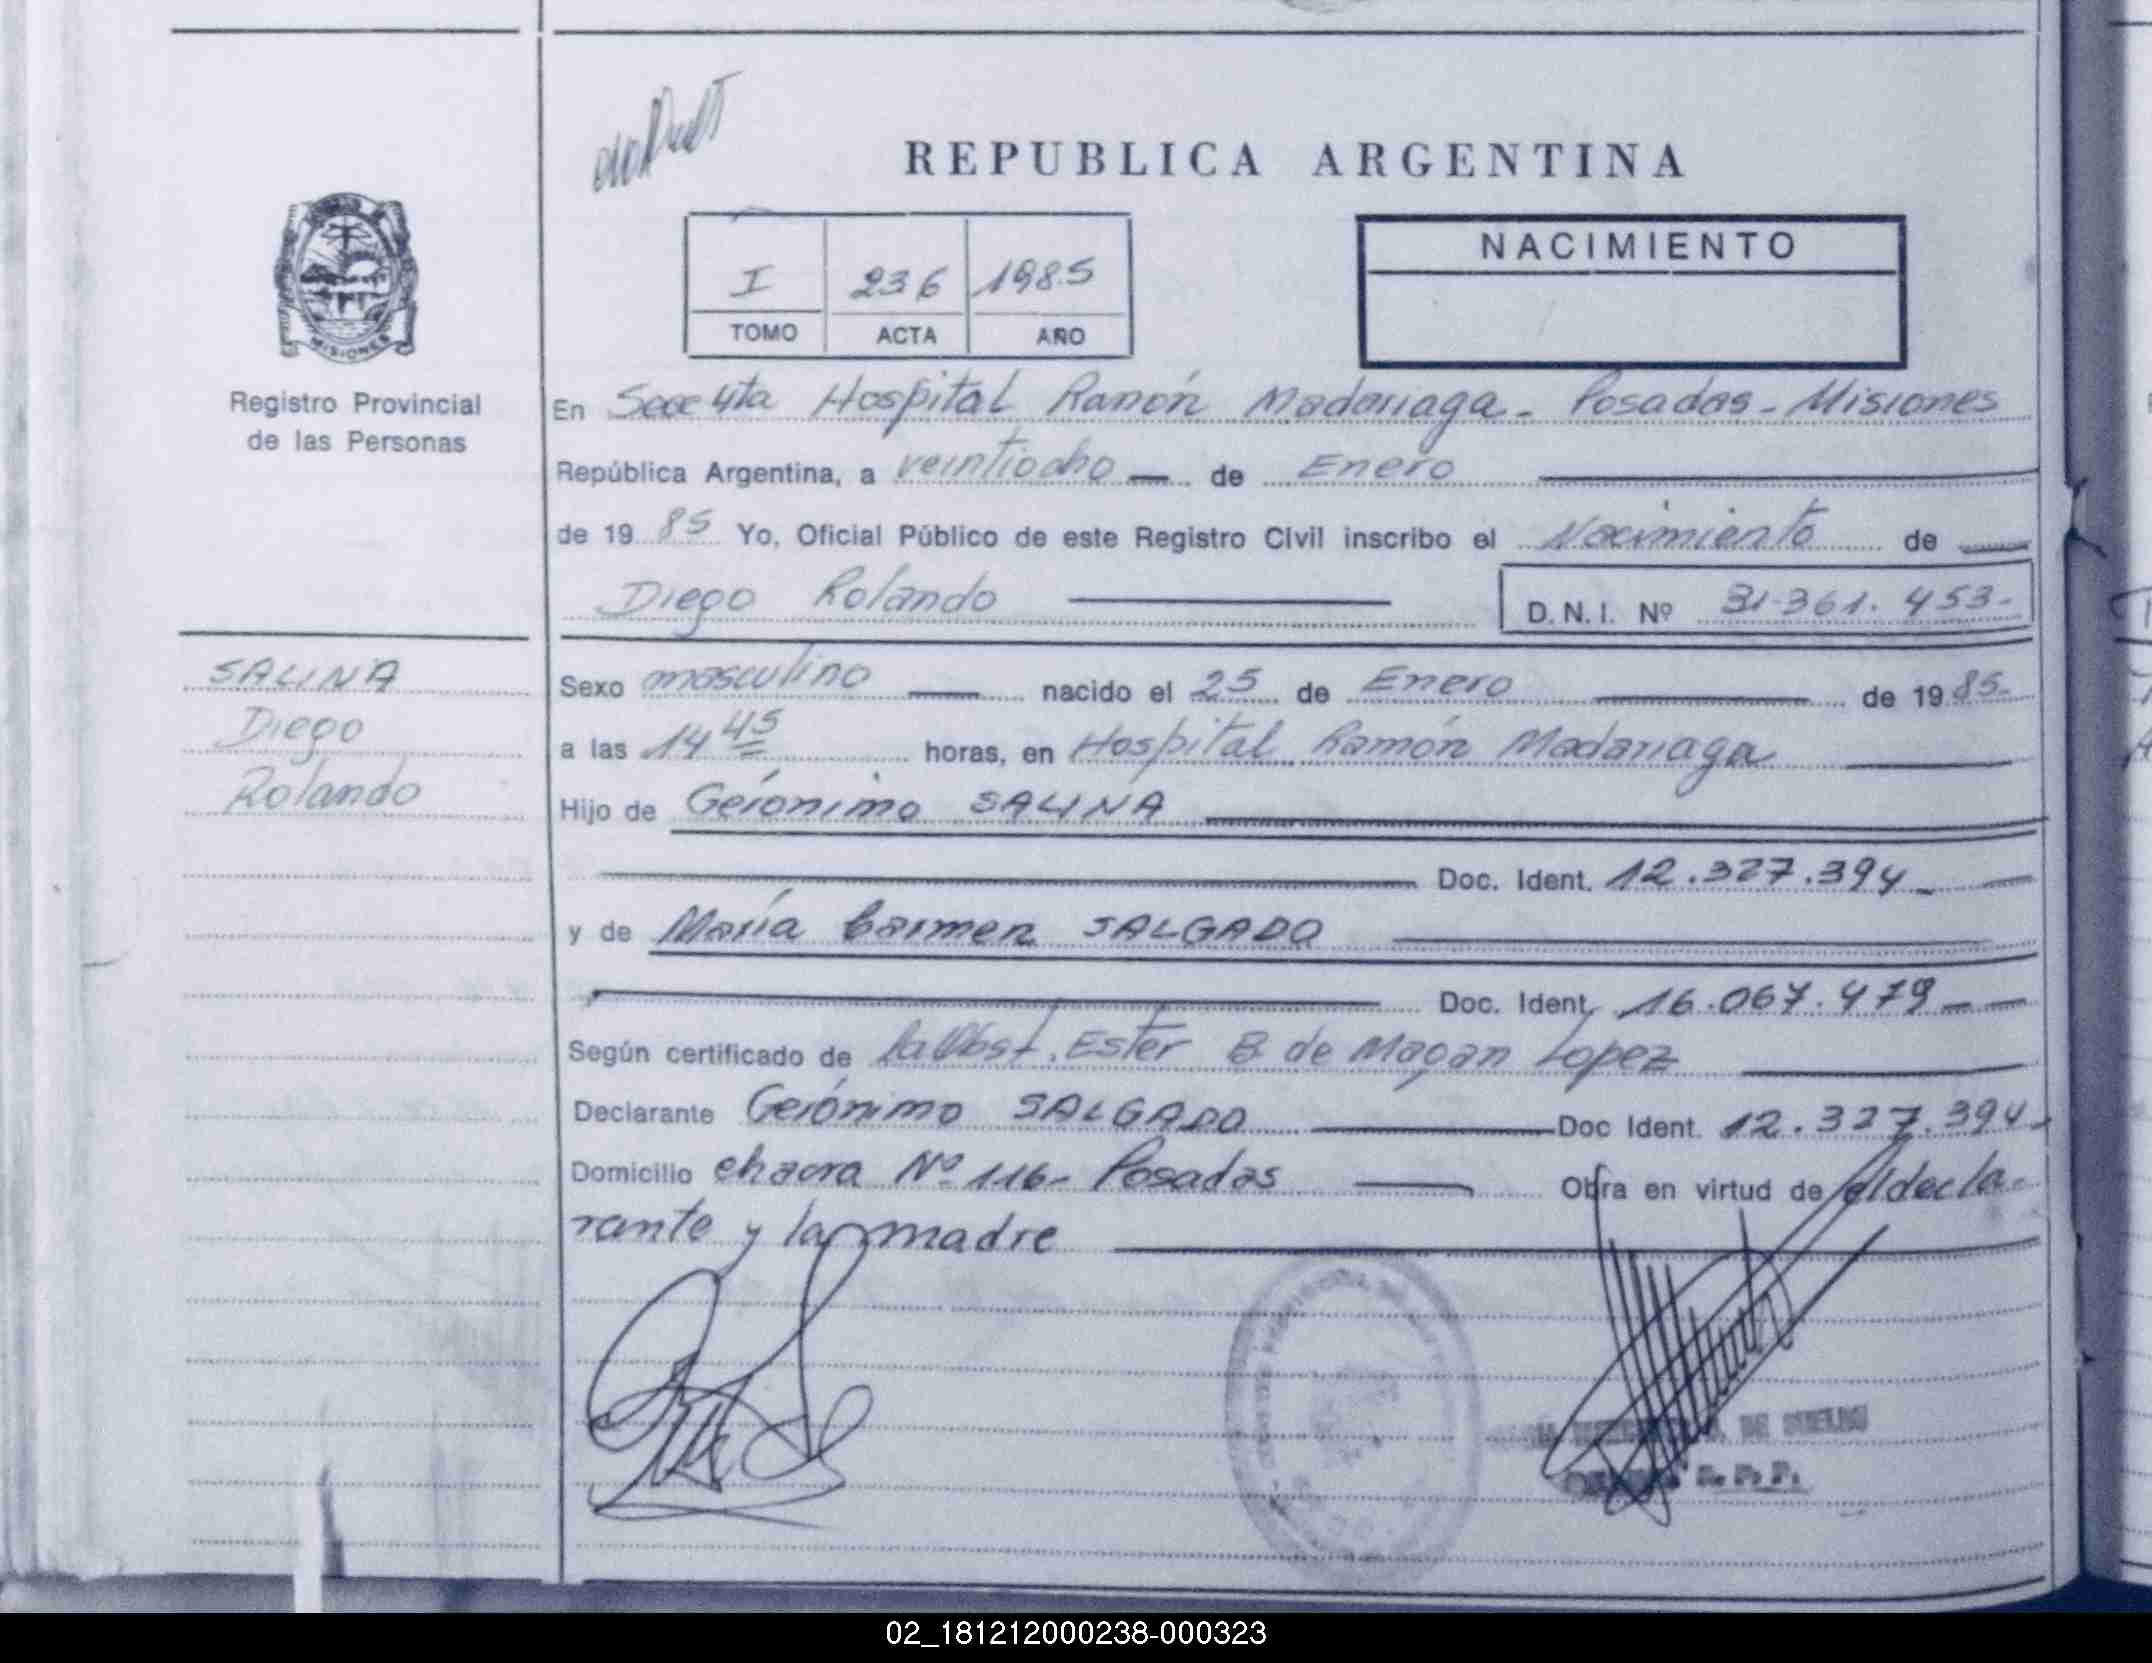 REPUBLICA ARGENTINA
MISIONES
Registro Provincial
de las Personas
I 236 1985
TOMO ACTA AÑO
NACIMIENTO
En Secc 4ta Hospital Ramón Madariaga - Posadas - Misiones
República Argentina, a veintiocho de Enero
de 1985 Yo, Oficial Público de este Registro Civil inscribo el Nacimiento de
Diego Rolando D.N.I. Nº 31.361.453.-
SALINA
Diego
Rolando
Sexo masculino nacido el 25 de Enero de 1985.-
a las 14 45 horas, en Hospital Ramón Madariaga
Hijo de Gerónimo SALINA
Doc. Ident. 12.327.394-
y de María Carmen SALGADO
Doc. Ident. 16.067.479-
Según certificado de la Obst. Ester B de Magan Lopez
Declarante Gerónimo SALGADO Doc Ident. 12.327.394-
Domicilio chacra Nº 116- Posadas Obra en virtud de el decla-
rante y la madre
DE
R. P. P.
02_181212000238-000323